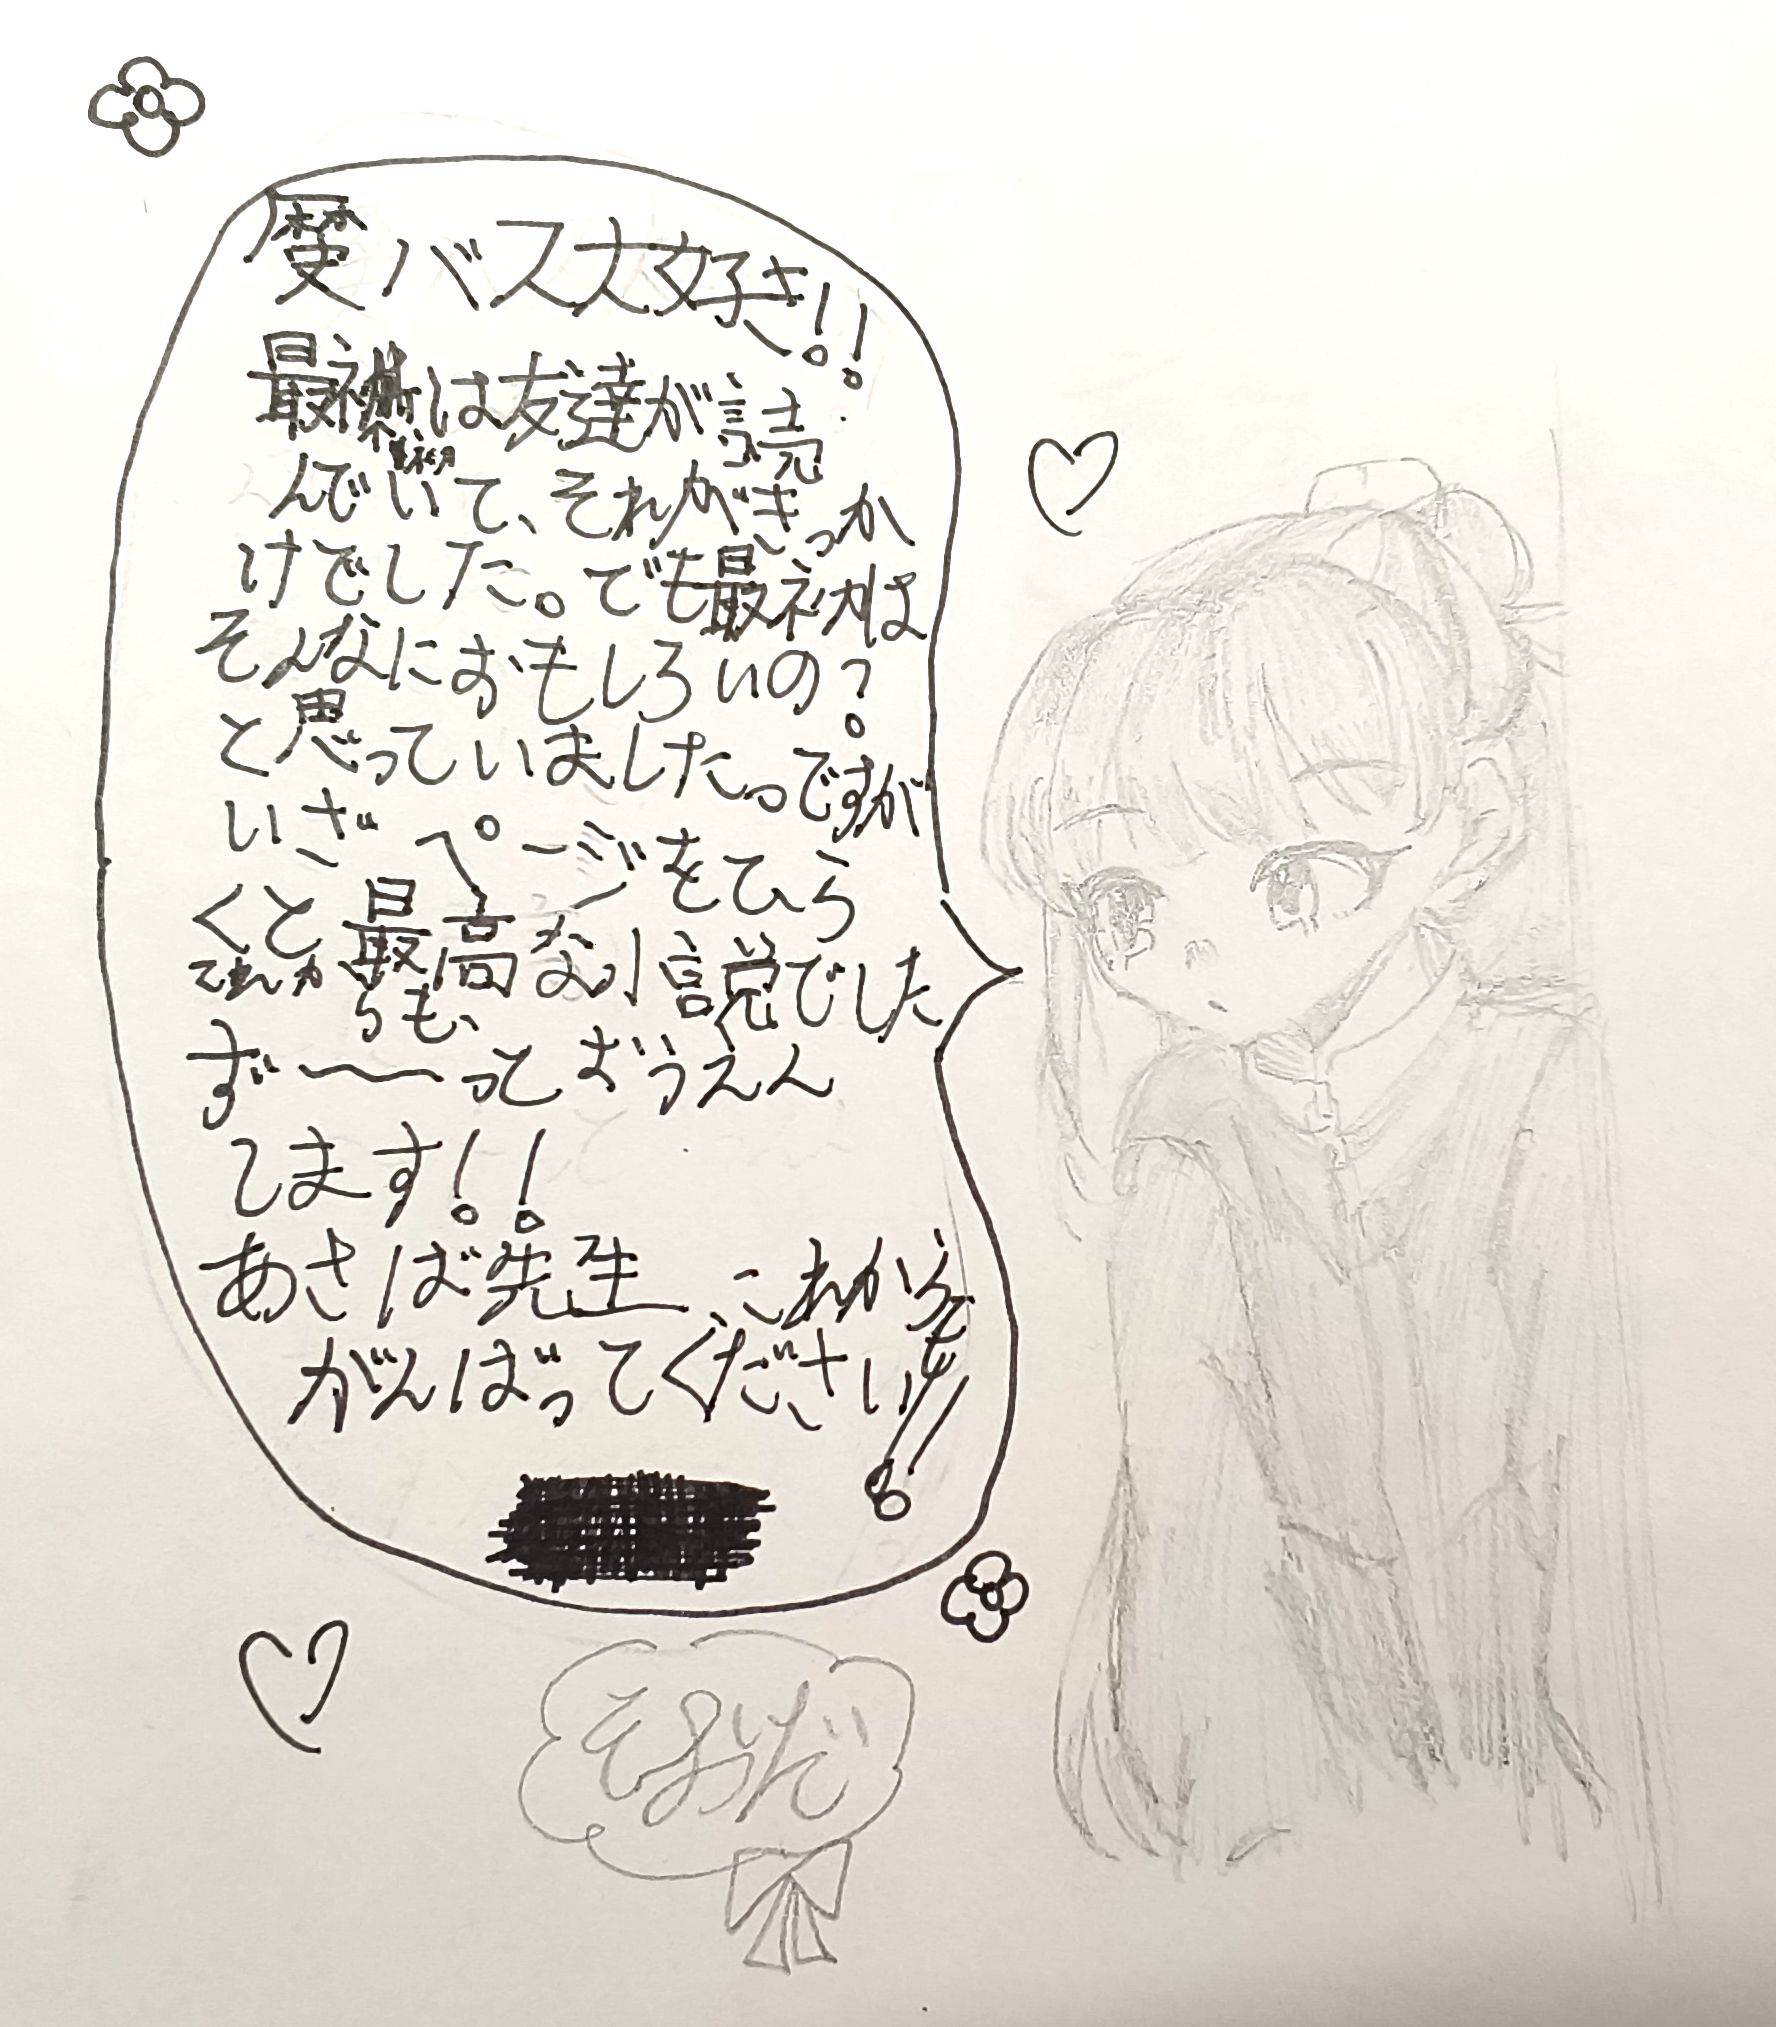 歴バス大好き!!
最初は友達が読
んでいて、それがきっか
けでした。でも最初は
そんなにおもしろいの?
と思っていました。ですが
いざページをひら
くと最高な小説でした
これからも、
ず――っておうえん
します!!
あさば先生、これからも
がんばってください!!
そおだ